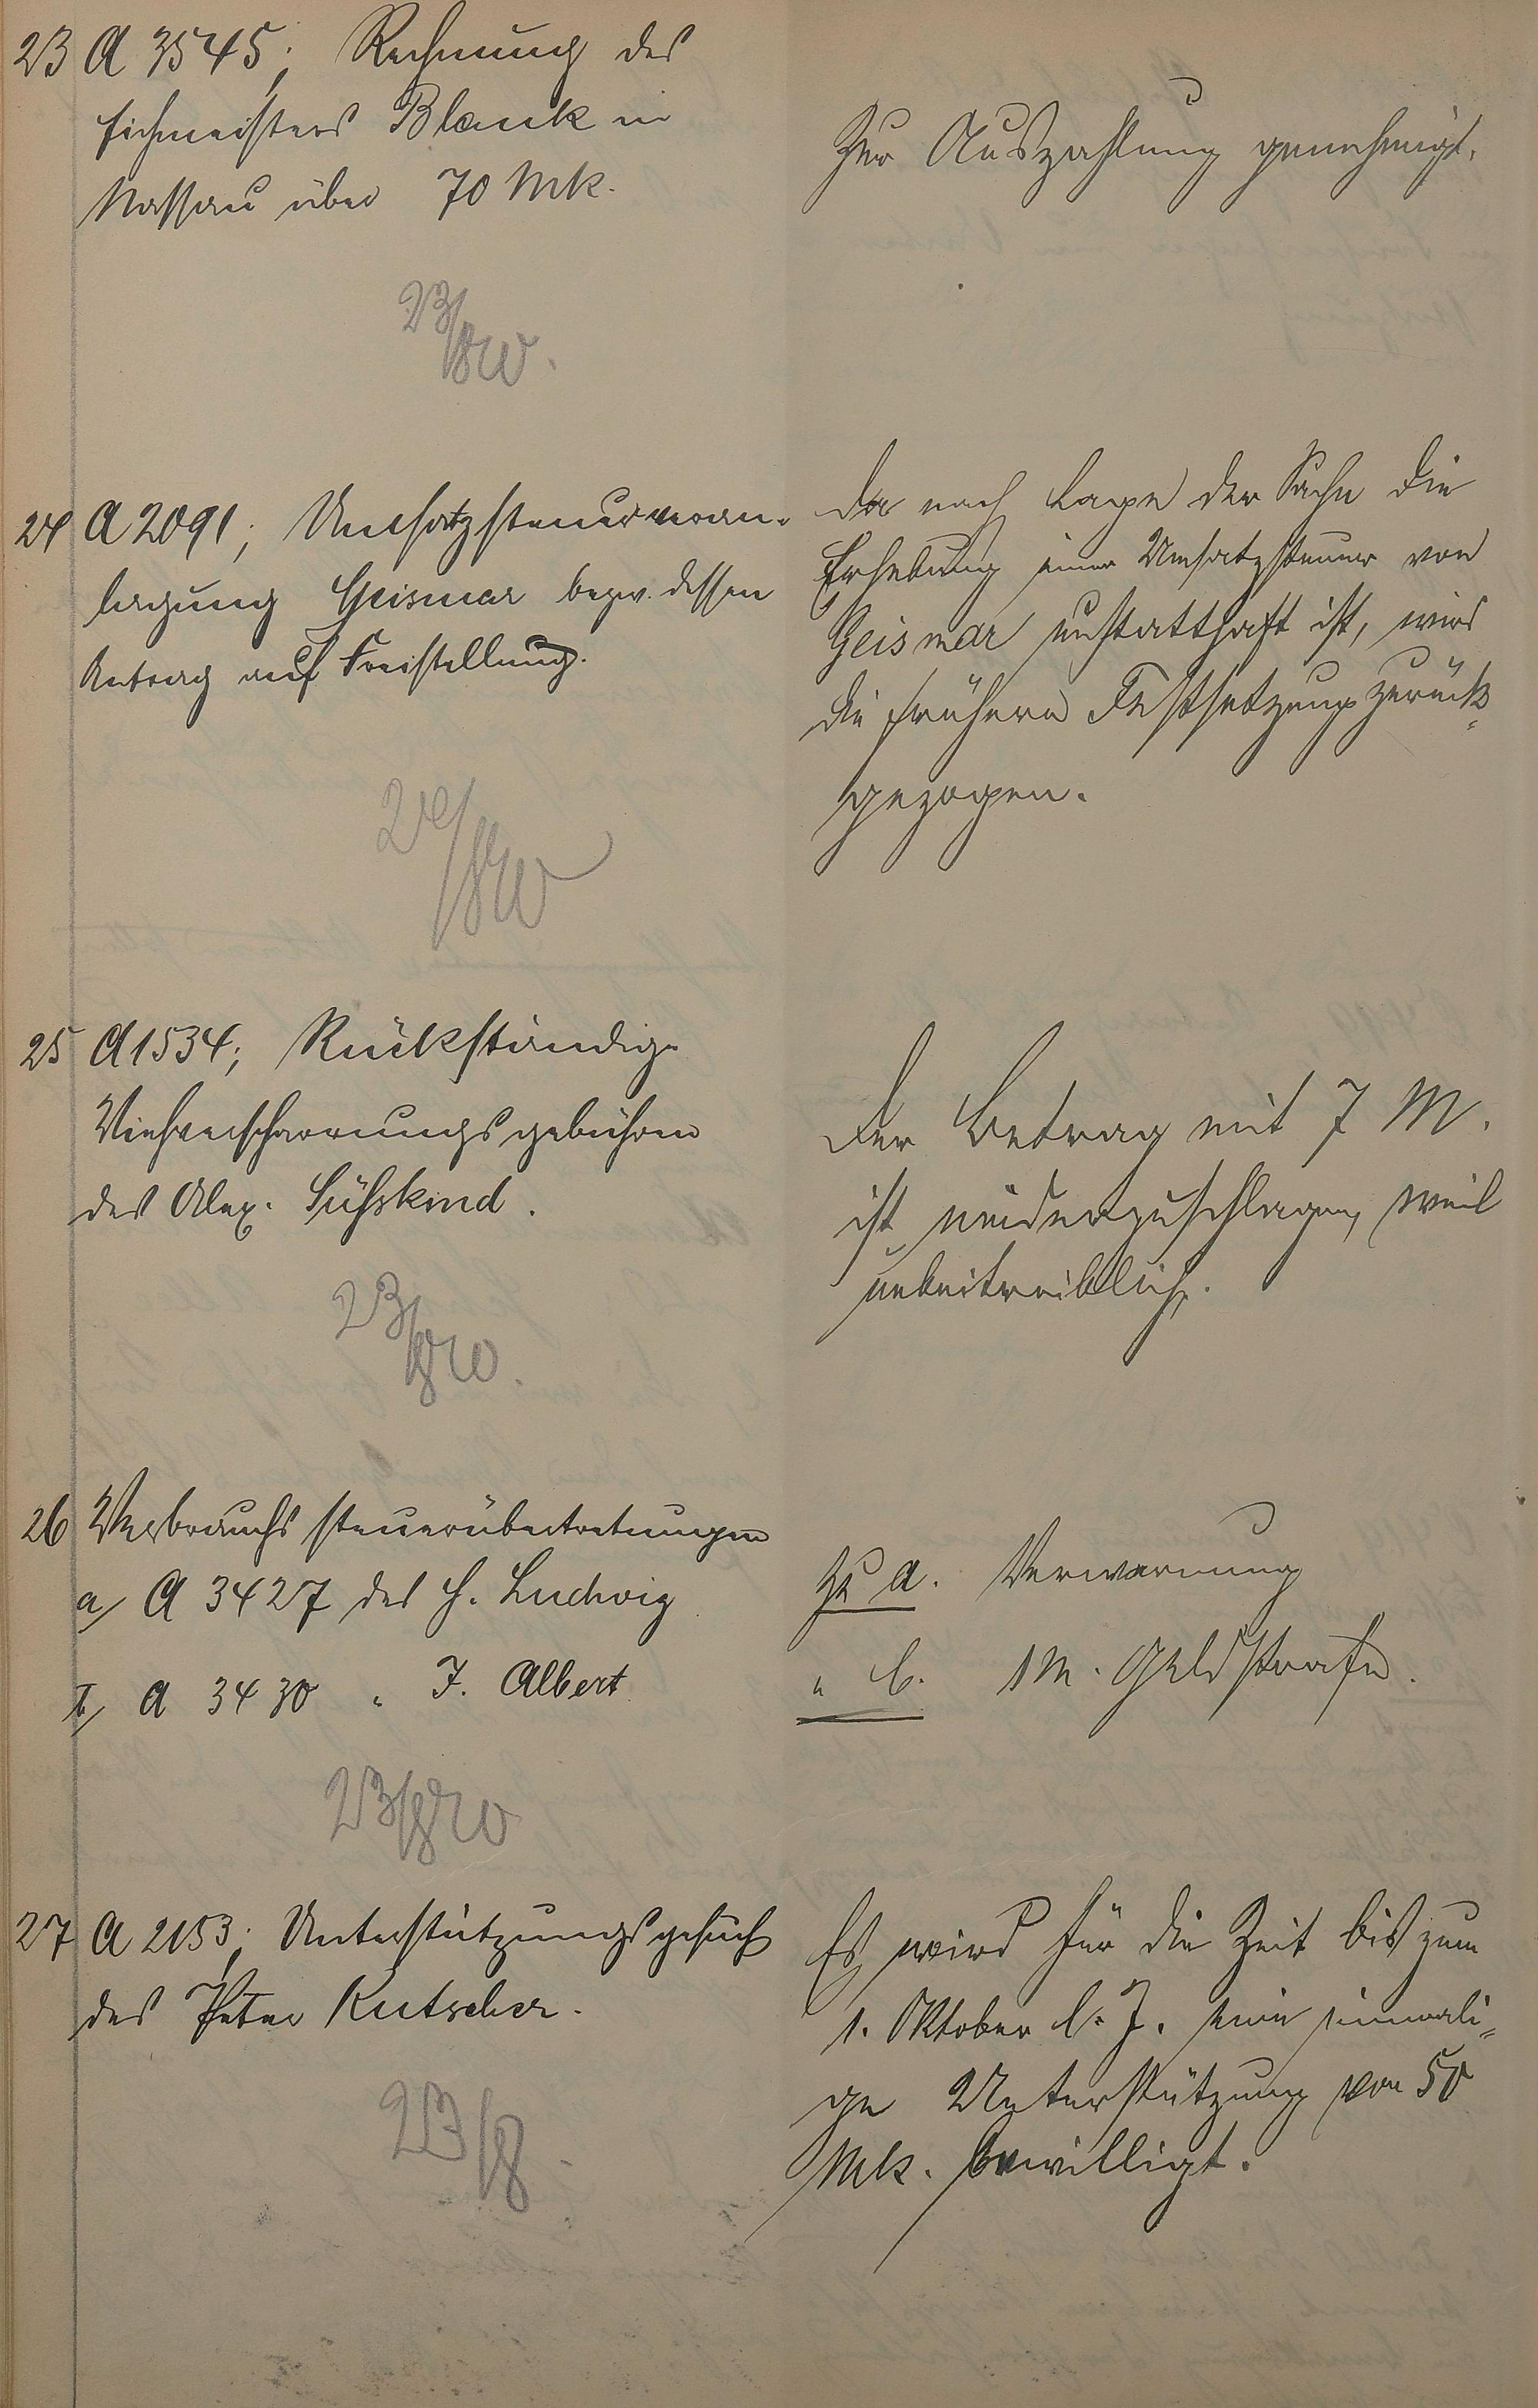 23 A 3545; Rechnung des
Eichmeisters Blank in
Nassau über 70 Mk.
Zur Auszahlung genehmigt.
23/8
24 A 2091; Umsatzsteuerveran-
lagung Geismar bezw. dessen
Antrag auf Freistellung.
Da nach Lage der Sache die
Erhebung einer Umsatzsteuer von
Geismar unstatthaft ist, wird
die frühere Festsetzung zurück-
gezogen.
25 A 1534; Rückständige
Viehverscharrungsgebühren
des Alex. Süßkind.
Der Betrag mit 7 M.
ist niederzuschlagen, weil
unbeitreiblich.
23/8
26 Verbrauchssteuerübertretungen
a/ A 3427 des H. Ludwig
b/ A 3430 " J. Albert
Zu a. Verwarnung
" b. 1 M. Geldstrafe.
23/8
27 A 2153; Unterstützungsgesuch
des Peter Kutscher.
Es wird für die Zeit bis zum
1. Oktober l. J. eine einmali-
ge Unterstützung von 50
Mk. bewilligt.
23/8